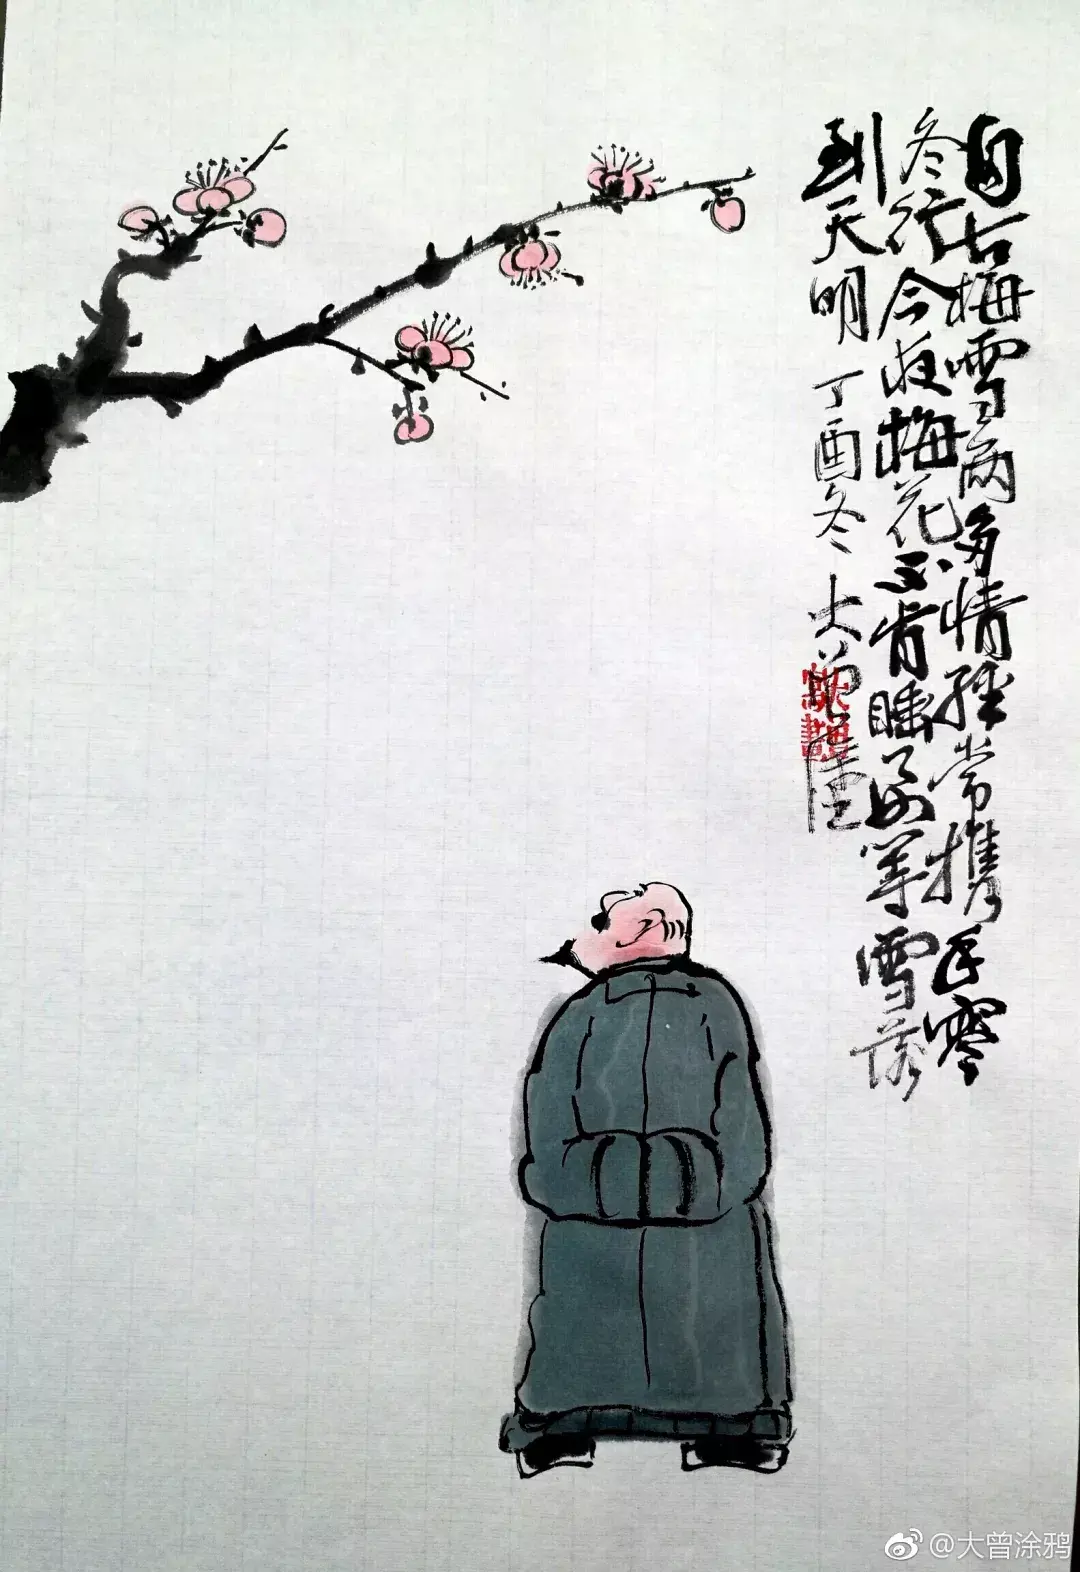 自古梅雪两多情经常携手寒
冬行今夜梅花不肯睡了别等雪落
到天明 丁酉冬 大曾画
@大曾涂鸦